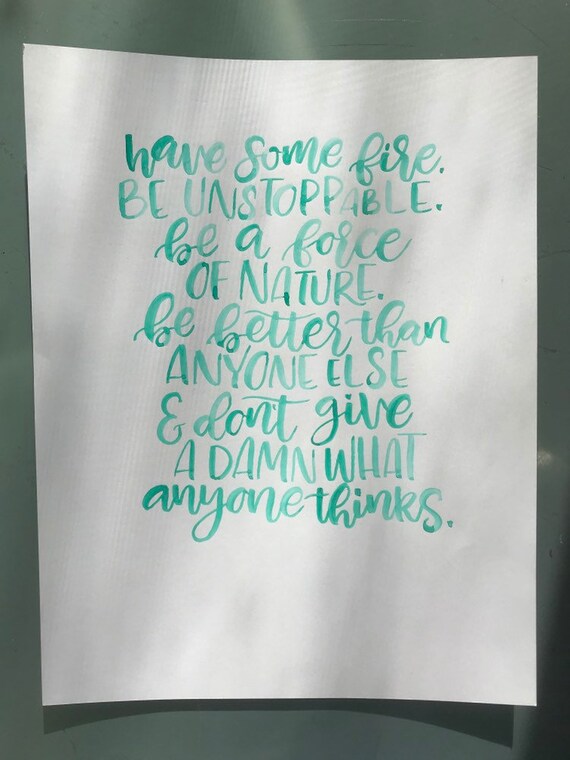 have some fire.
BE UNSTOPPABLE.
be a force
OF NATURE.
be better than
ANYONE ELSE
& don't give
A DAMN WHAT
anyone thinks.